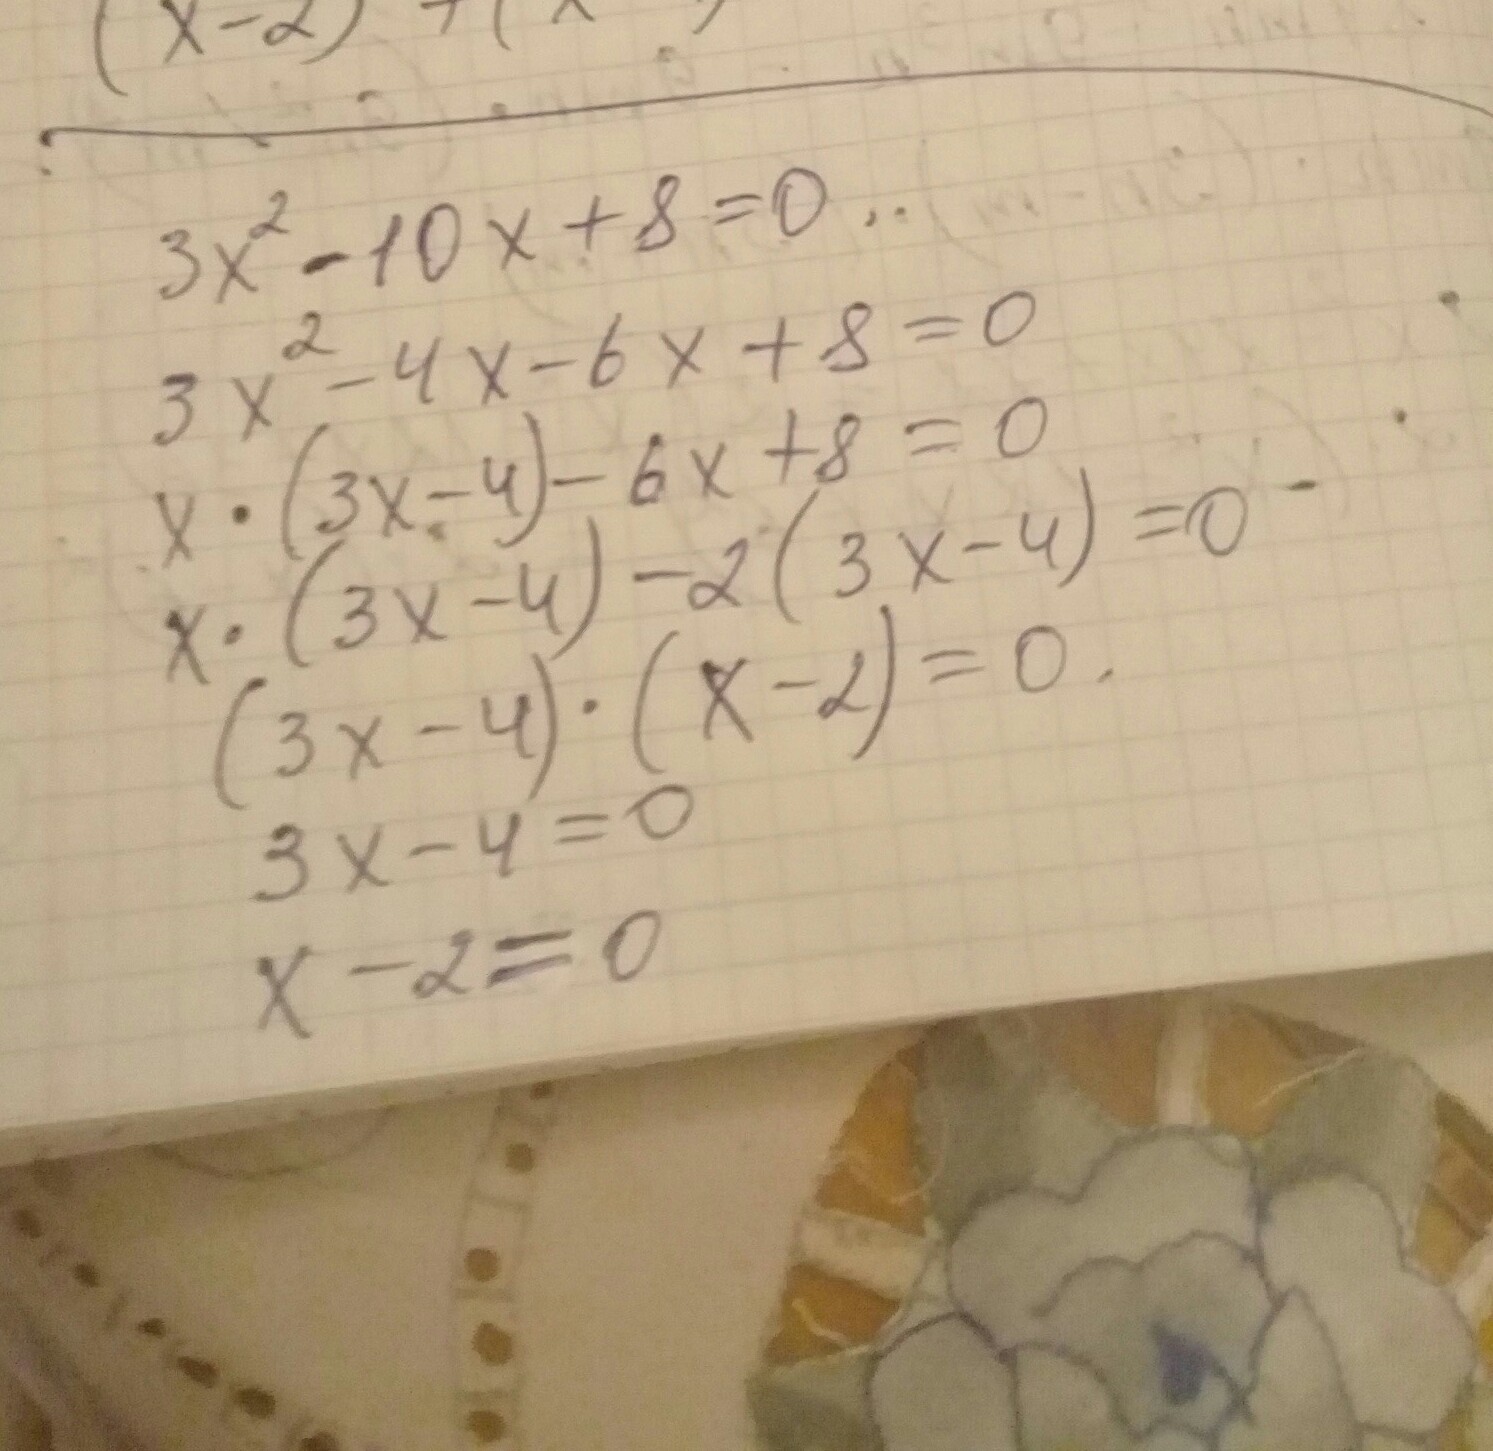 (x-2) + (x
3x² - 10x + 8 = 0
3x² - 4x - 6x + 8 = 0
x · (3x - 4) - 6x + 8 = 0
x · (3x - 4) - 2(3x - 4) = 0
(3x - 4) · (x - 2) = 0.
3x - 4 = 0
x - 2 = 0